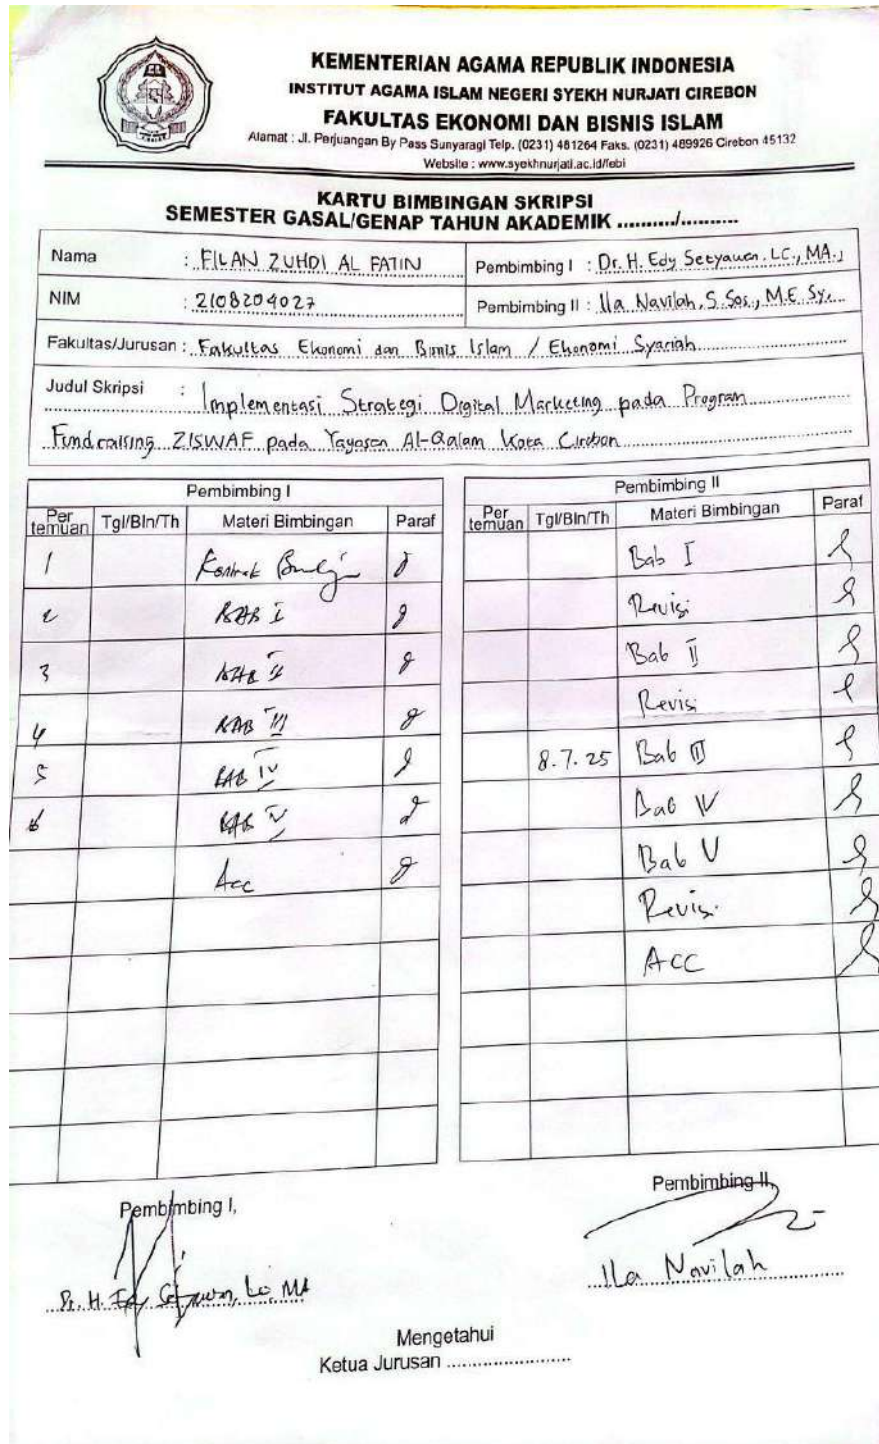 KEMENTERIAN AGAMA REPUBLIK INDONESIA
INSTITUT AGAMA ISLAM NEGERI SYEKH NURJATI CIREBON
FAKULTAS EKONOMI DAN BISNIS ISLAM
Alamat : Jl. Perjuangan By Pass Sunyaragi Telp. (0231) 481264 Faks. (0231) 489926 Cirebon 45132
Website : www.syekhnurjati.ac.id/febi
KARTU BIMBINGAN SKRIPSI
SEMESTER GASAL/GENAP TAHUN AKADEMIK ........../..........
Nama : FILAN ZUHDI AL FATIN
Pembimbing I : Dr. H. Edy Setyawan. LC., MA.,
NIM : 2108204027
Pembimbing II : Ila Navilah, S. Sos., M.E Sy.
Fakultas/Jurusan : Fakultas Ekonomi dan Bisnis Islam / Ekonomi Syariah
Judul Skripsi : Implementasi Strategi Digital Marketing pada Program
Fundraising ZISWAF pada Yayasan Al-Qalam Kota Cirebon
Pembimbing I
Per temuan Tgl/Bln/Th Materi Bimbingan Paraf
1 Kontrak
2 BAB I
3 BAB II
4 BAB III
5 BAB IV
6 BAB V
Acc
Pembimbing II
Per temuan Tgl/Bln/Th Materi Bimbingan Paraf
Bab I
Revisi
Bab II
Revisi
8.7.25 Bab III
Bab IV
Bab V
Revisi
ACC
Pembimbing I,
Dr. H. Edy Setyawan, Lc, MA
Pembimbing II,
Ila Navilah
Mengetahui
Ketua Jurusan ........................